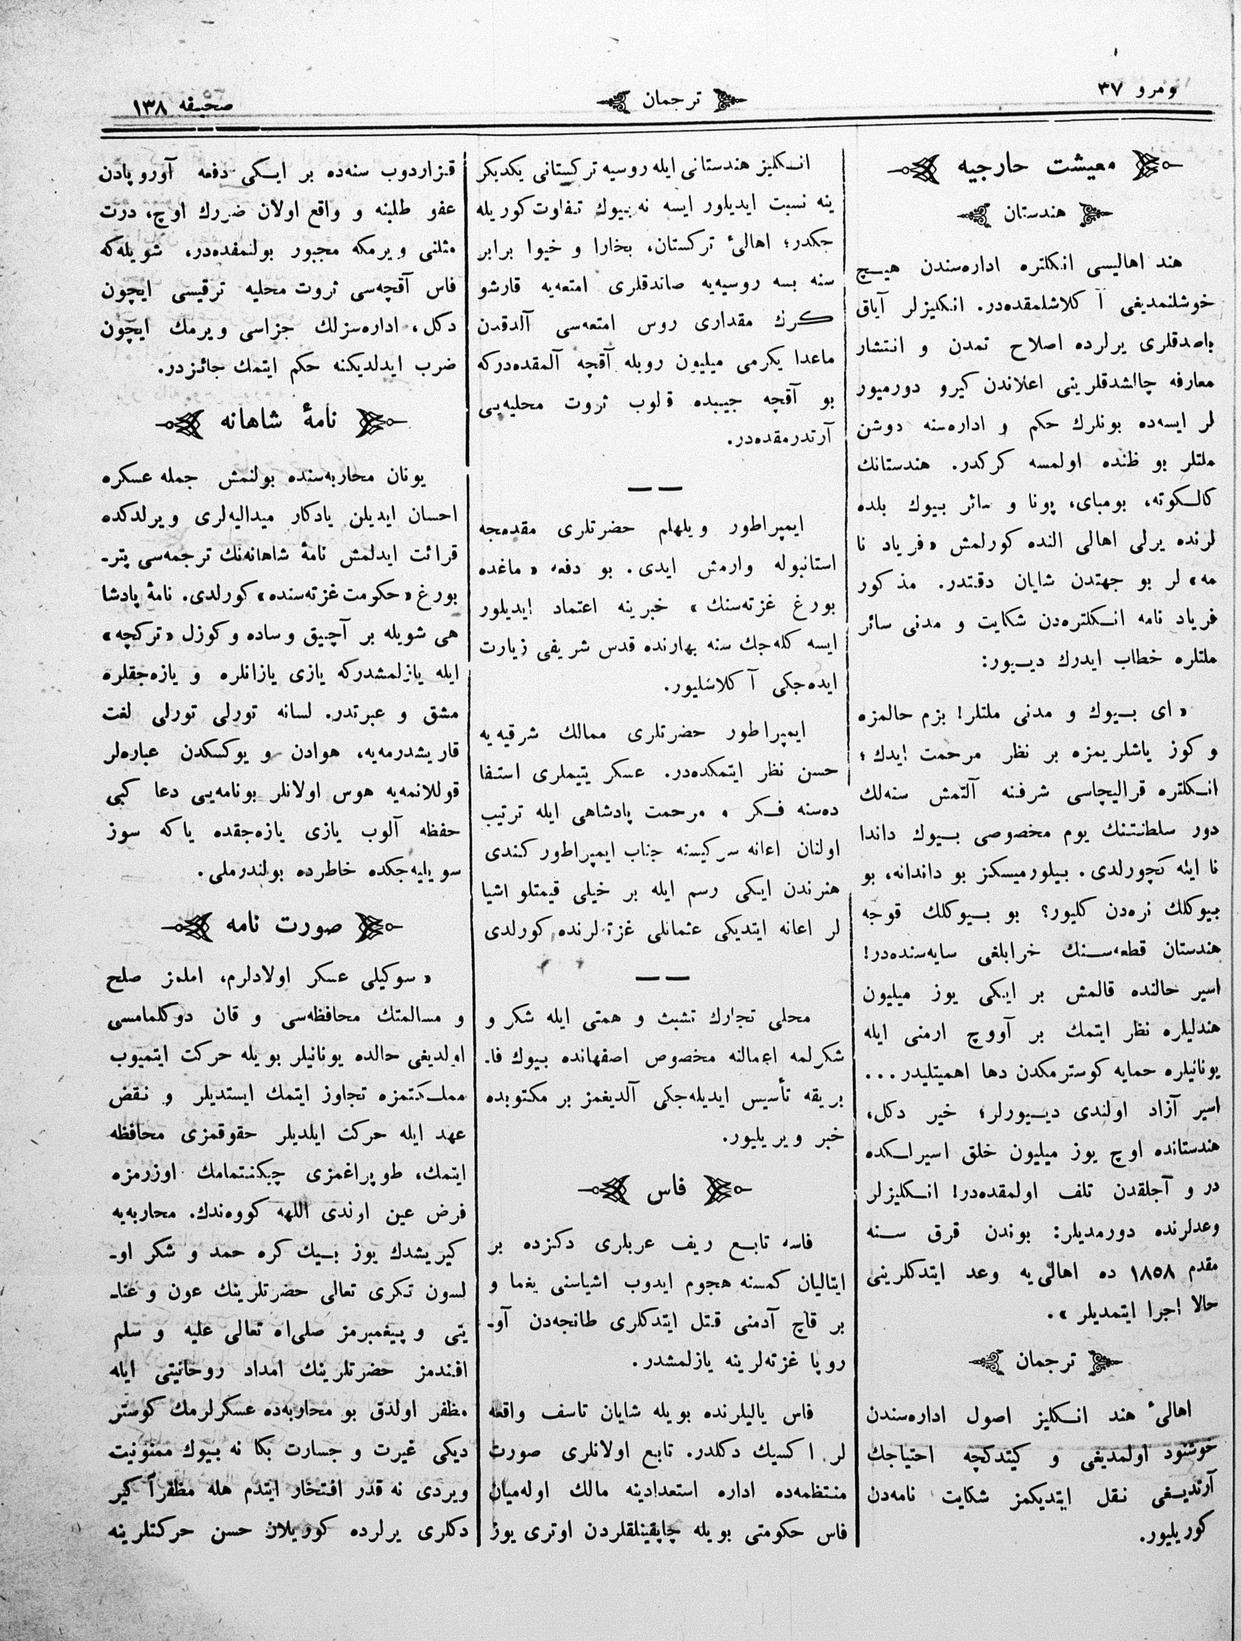 نومرو ٣٧
ترجمان
صحيفه ١٣٨
معيشت حارجيه
هندستان
هند اهاليسى انكلتره اداره‌سندن هيچ
خوشلنمديغى آكلاشلمقده‌در. انكليزلر آياق
باصدقلرى يرلرده اصلاح تمدن و انتشار
معارفه چالشدقلرينى اعلاندن كيرو دورميور
لر ايسه‌ده بونلرك حكم و اداره‌سنه دوشن
ملتلر بو ظنده اولمسه كركدر. هندستانك
كالكوته، بومباى، پونا و سائر بيوك بلده
لرنده يرلى اهالى النده كورلمش «فرياد نا
مه» لر بو جهتدن شايان دقتدر. مذكور
فرياد نامه انكلتره‌دن شكايت و مدنى سائر
ملتلره خطاب ايدرك ديیور:
«اى بيوك و مدنى ملتلر! بزم حالمزه
و كوز ياشلريمزه بر نظر مرحمت ايدك؛
انكلتره قراليچاسى شرفنه آلتمش سنه‌لك
دور سلطنتنك يوم مخصوصى بيوك داندا
نا ايله كچورلدى. بيلورميسكز بو داندانه، بو
بيوكلك نره‌دن كليور؟ بو بيوكلك قوجه
هندستان قطعه‌سنك خرابلغى سايه‌سنده‌در!
اسير حالنده قالمش بر ايكى يوز ميليون
هندليلره نظر ايتمك بر آووچ ارمنى ايله
يونانيلره حمايه كوسترمكدن دها اهميتليدر...
اسير آزاد اولندى ديیورلر؛ خير دكل،
هندستانده اوچ يوز ميليون خلق اسيرلكده
در و آجلقدن تلف اولمقده‌در! انكليزلر
وعدلرنده دورمديلر: بوندن قرق سنه
مقدم ١٨٥٨ ده اهالى‌يه وعد ايتدكلرينى
حالا اجرا ايتمديلر».
ترجمان
اهالئ هند انكليز اصول اداره‌سندن
خوشنود اولمديغى و كيتدكچه احتياجك
آرتديغى نقل ايتديكمز شكايت نامه‌دن
كوريليور.
انكليز هندستانى ايله روسيه تركستانى يكديكر
ينه نسبت ايديلور ايسه نه بيوك تفاوت كوريله
جكدر؛ اهالئ تركستان، بخارا و خيوا برابر
سنه بسه روسيه‌يه صاندقلرى امتعه‌يه قارشو
كرك مقدارى روس امتعه‌سى آلدقدن
ماعدا يكرمى ميليون روبله آقچه آلمقده‌دركه
بو آقچه جيبده قلوب ثروت محليه‌يى
آرتدرمقده‌در.
ايمپراطور ويلهلم حضرتلرى مقدمجه
استانبوله وارمش ايدى. بو دفعه «ماغده
بورغ غزته‌سنك» خبرينه اعتماد ايديلور
ايسه كله‌جك سنه بهارنده قدس شريفى زيارت
ايده‌جكى آكلاشليور.
ايمپراطور حضرتلرى ممالك شرقيه‌يه
حسن نظر ايتمكده‌در. عسكر يتيملرى استفا
ده‌سنه فكر و مرحمت پادشاهى ايله ترتيب
اولنان اعانه سركيسنه جناب ايمپراطور كندى
هنرندن ايكى رسم ايله بر خيلى قيمتلو اشيا
لر اعانه ايتديكى عثمانلى غزته‌لرنده كورلدى
محلى تجارك تشبث و همتى ايله شكر و
شكرلمه اعمالنه مخصوص اصفهانده بيوك فا-
بريقه تأسيس ايديله‌جكى آلديغمز بر مكتوبده
خبر ويريليور.
فاس
فاسه تابع ريف عربلرى دكزده بر
ايتاليان كمسنه هجوم ايدوب اشياسنى يغما و
بر قاچ آدمنى قتل ايتدكلرى طانجه‌دن آو-
روپا غزته‌لرينه يازلمشدر.
فاس ياليلرنده بويله شايان تاسف واقعه
لر اكسيك دكلدر. تابع اولانلرى صورت
منتظمه‌ده اداره استعدادينه مالك اوله‌ميان
فاس حكومتى بويله چاپقينلقلردن اوترى يوز
قزاردوب سنه‌ده بر ايكى دفعه آوروپادن
عفو طلبنه و واقع اولان ضررك اوچ، درت
مثلنى ويرمكه مجبور بولنمقده‌در، شويله‌كه
فاس آقچه‌سى ثروت محليه ترقيسى ايچون
دكل، اداره‌سزلك جزاسى ويرمك ايچون
ضرب ايدلديكنه حكم ايتمك جائزدر.
نامۀ شاهانه
يونان محاربه‌سنده بولنمش جمله عسكره
احسان ايديلن يادكار ميداليه‌لرى ويرلدكده
قرائت ايدلمش نامۀ شاهانه‌نك ترجمه‌سى پتر-
بورغ «حكومت غزته‌سنده» كورلدى. نامۀ پادشا
هى شويله بر آچيق و ساده و كوزل «تركچه»
ايله يازلمشدركه يازى يازانلره و يازه‌جقلره
مشق و عبرتدر. لسانه تورلى تورلى لغت
قاريشدرمه‌يه، هوادن و يوكسكدن عباره‌لر
قوللانمه‌يه هوس اولانلر بونامه‌يى دعا كبى
حفظه آلوب يازى يازه‌جقده ياكه سوز
سويليه‌جكده خاطرده بولندرملى.
صورت نامه
«سوكيلى عسكر اولادلرم، املمز صلح
و مسالمتك محافظه‌سى و قان دوكلمامسى
اولديغى حالده يونانيلر بويله حركت ايتميوب
مملكتمزه تجاوز ايتمك ايستديلر و نقض
عهد ايله حركت ايلديلر حقوقمزى محافظه
ايتمك، طوپراغمزى چيكنتمامك اوزرمزه
فرض عين اوندى اللهه كووه‌ندك. محاربه‌يه
كيريشدك يوز بيك كره حمد و شكر او-
لسون تكرى تعالى حضرتلرينك عون و عنا-
يتى و پيغمبرمز صلى‌اه تعالى عليه و سلم
افندمز حضرتلرينك امداد روحانيتى ايله
مظفر اولدق بو محاربه‌ده عسكرلرمك كوستر
ديكى غيرت و جسارت بكا نه بيوك ممنونيت
ويردى نه قدر افتخار ايتدم هله مظفراً كير
دكلرى يرلرده حسن حركتلرينه